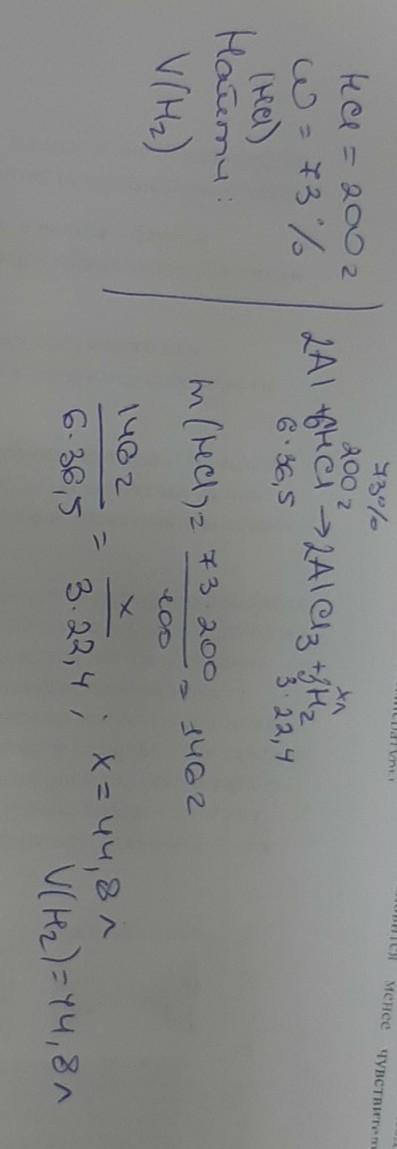 HCl = 200 г
ω = 73 %
(HCl)
Найти :
V(H₂)
73%
200 г
xл
2Al + 6HCl → 2AlCl₃ + 3H₂
6·36,5
3·22,4
m(HCl) = 73·200 / 100 = 146 г
146 г / 6·36,5 = x / 3·22,4 ; x = 44,8 л
V(H₂) = 44,8 л
менее чувствител